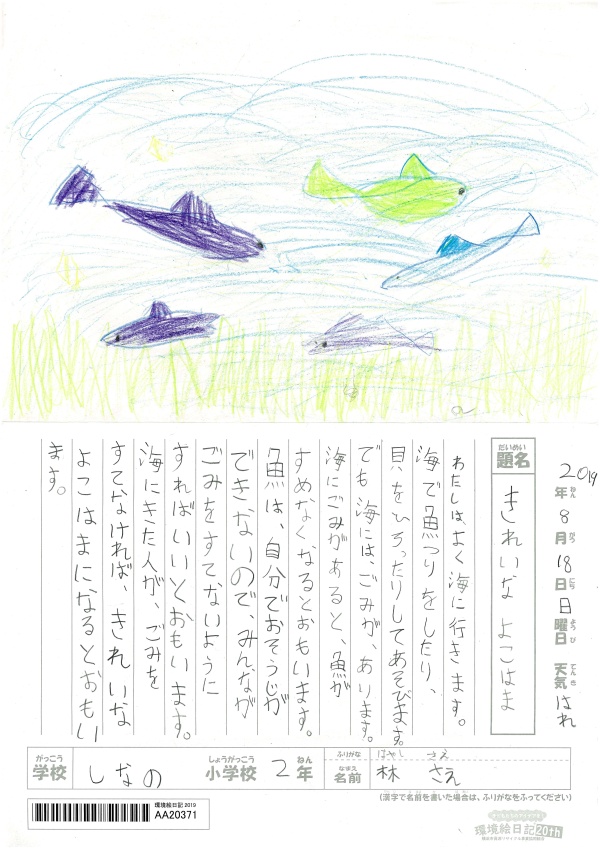 2019年8月18日日曜日 天気はれ
ねん がつ にち ようび てんき
だいめい
題名
きれいな よこはま
わたしは、よく海に行きます。
海で魚つりをしたり、
貝をひろったりしてあそびます。
でも海には、ごみが、あります。
海にごみがあると、魚が
すめなくなるとおもいます。
魚は、自分でおそうじが
できないので、みんなが
ごみをすてないように
すればいいとおもいます。
海にきた人が、ごみを
すてなければ、きれいな
よこはまになるとおもい
ます。
がっこう しょうがっこう ねん ふりがな はやし さえ
学校 しなの 小学校 2年 なまえ 名前 林 さえ
(漢字で名前を書いた場合は、ふりがなをふってください)
環境絵日記 2019
AA20371
環境絵日記20th